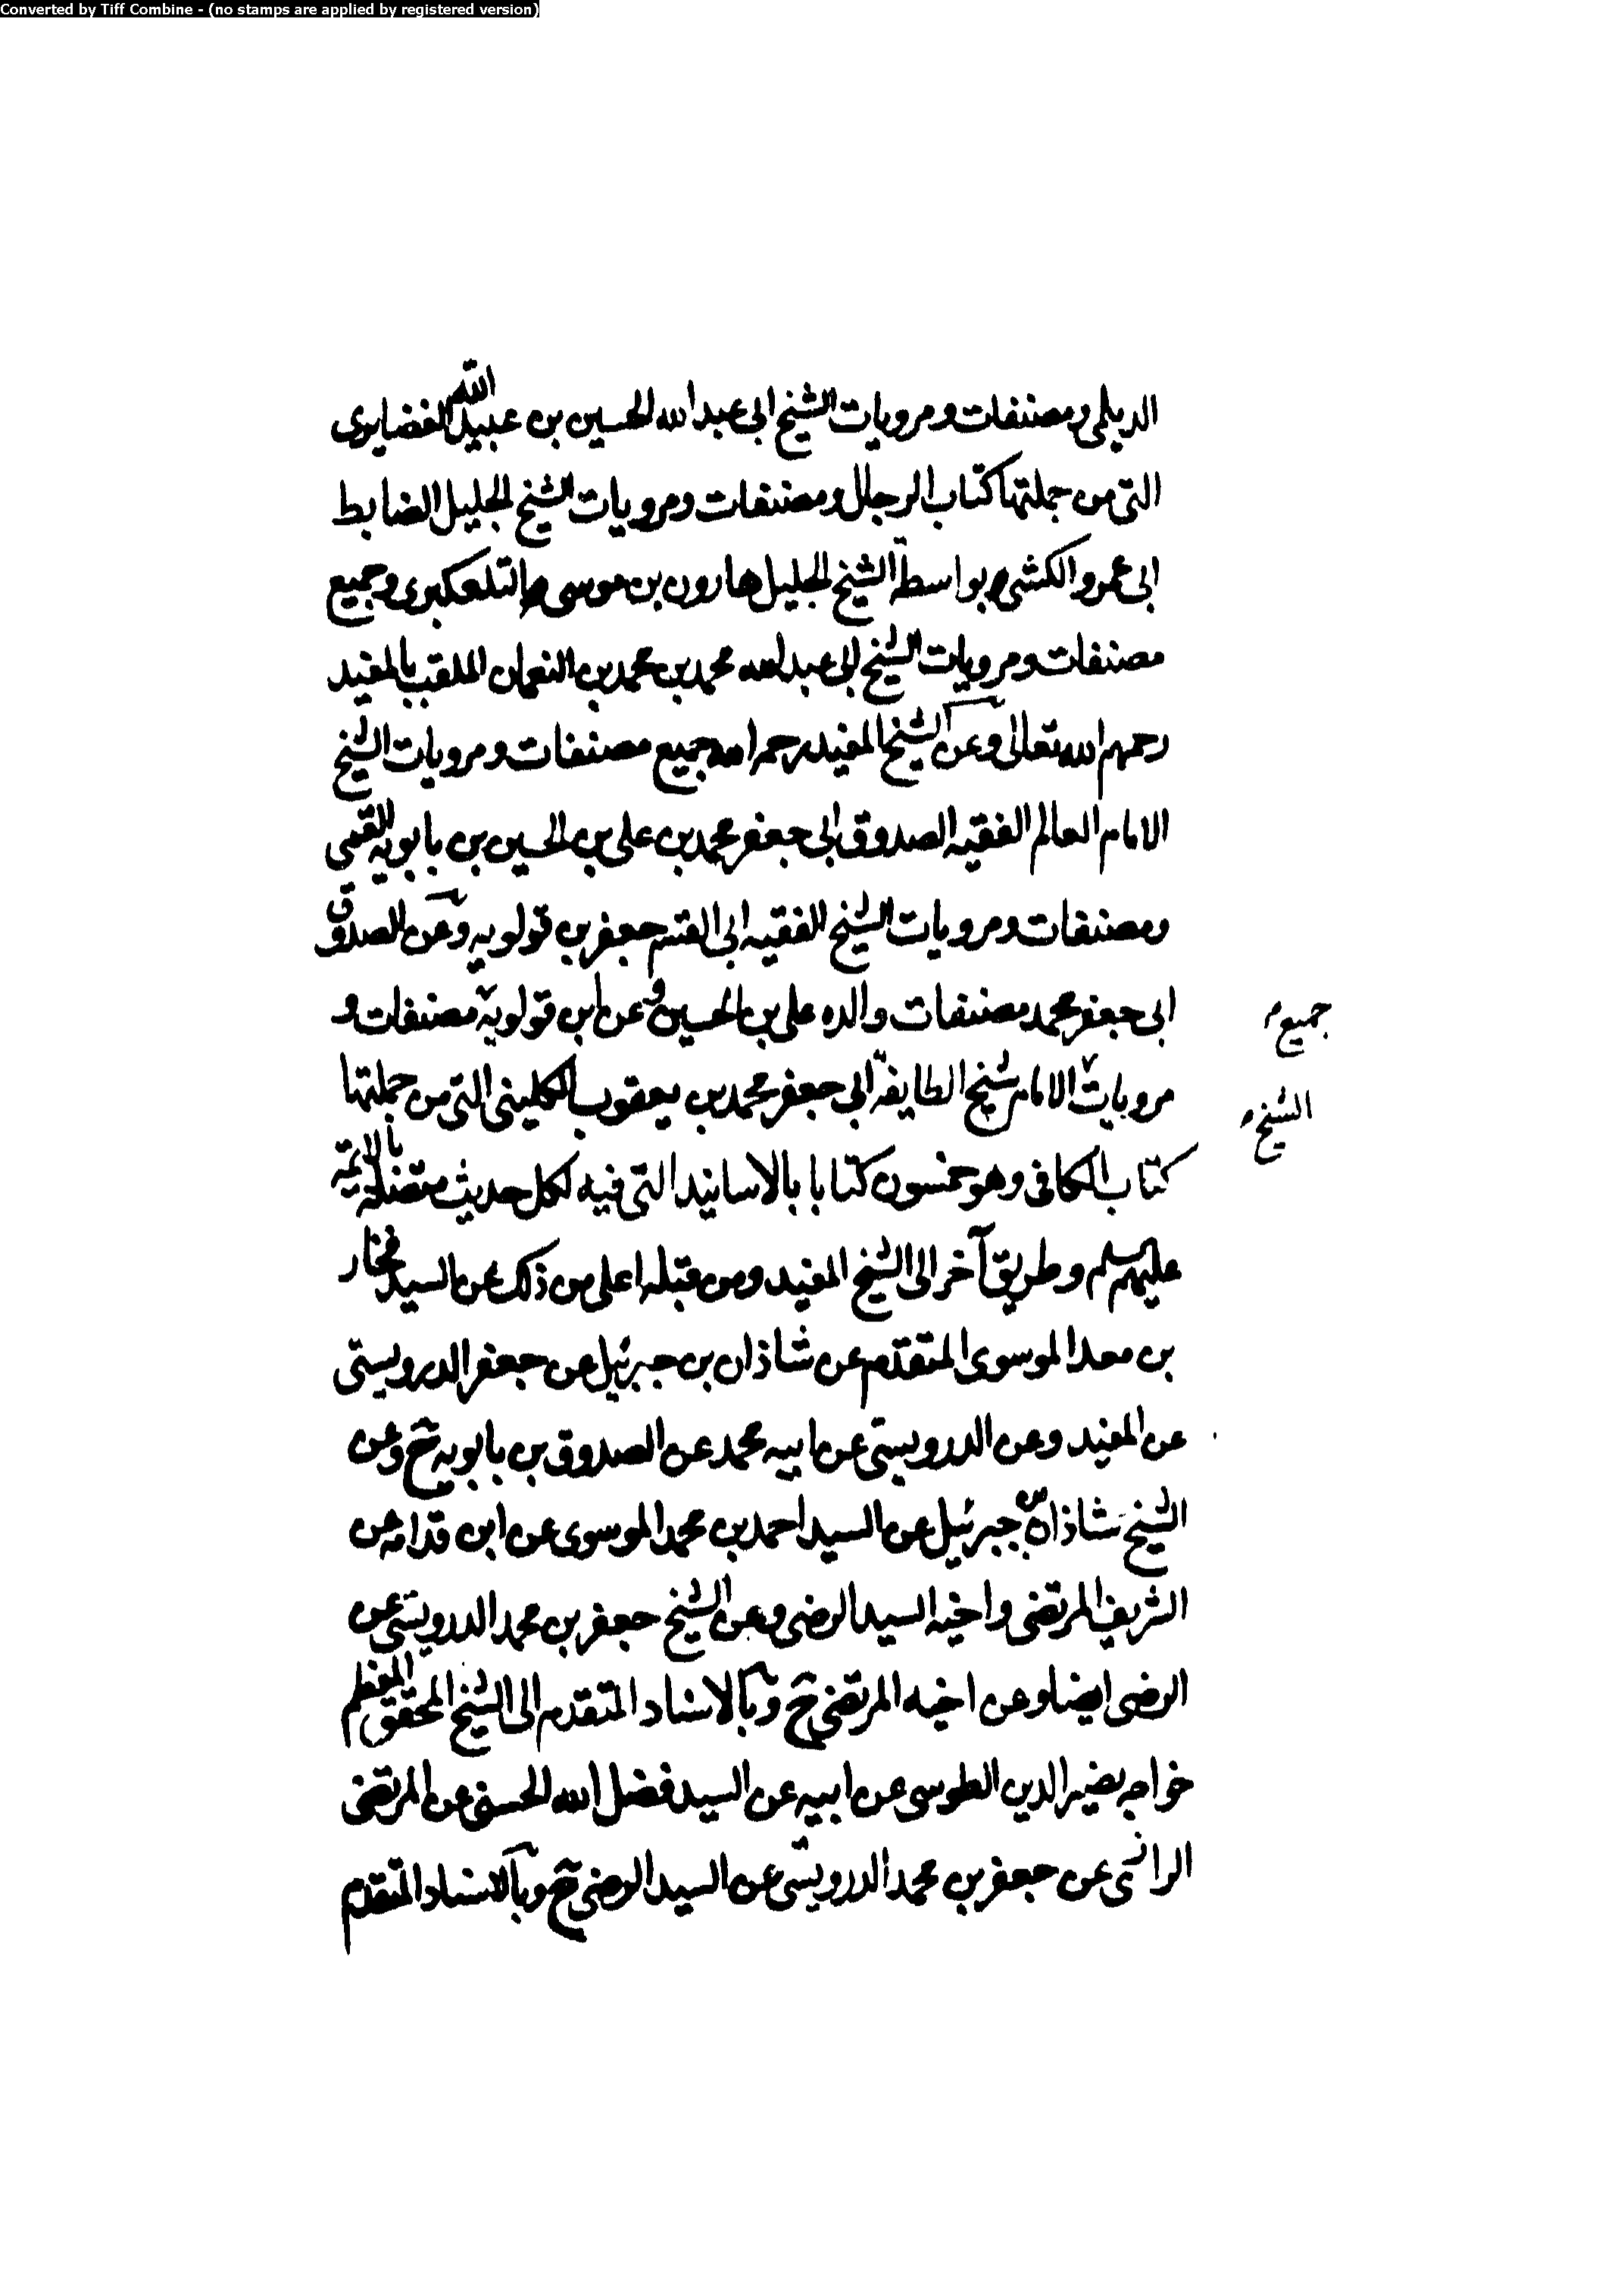 Converted by Tiff Combine - (no stamps are applied by registered version)
الديلمى ومصنفات ومرويات الشيخ ابى عبد الله الحسين بن عبيد الله الغضايرى
التى من جملتها كتاب الرجال ومصنفات ومرويات الشيخ الجليل الضابط
ابى عمرو الكشى بواسطة الشيخ الجليل هارون بن موسى التلعكبرى وجميع
مصنفات ومرويات الشيخ ابى عبد الله محمد بن محمد بن النعمان الملقب بالمفيد
رحمهم الله تعالى وعن الشيخ المفيد رحمه الله جميع مصنفات ومرويات الشيخ
الامام العالم الفقيه الصدوق ابى جعفر محمد بن على بن الحسين بن بابويه القمى
ومصنفات ومرويات الشيخ الفقيه ابى القسم جعفر بن قولويه وعن الصدوق
ابى جعفر محمد مصنفات والده على بن الحسين وعن ابن قولويه مصنفات و
جميع
مرويات الامام شيخ الطايفة ابى جعفر محمد بن يعقوب الكلينى التى من جملتها
الشيخ
كتاب الكافى وهو خمسون كتابا بالاسانيد التى فيه لكل حديث متصلة بالايمة
عليهم سلم وطريق آخر الى الشيخ المفيد ومن قبله اعلى من ذلك عن السيد فخار
بن معد الموسوى المتقدم عن شاذان بن جبرئيل عن جعفر الدرويستى
عن المفيد وعن الدرويستى عن ابيه محمد عن الصدوق بن بابويه ح وعن
الشيخ شاذان بن جبرئيل عن السيد احمد بن محمد الموسوى عن ابن قدامه عن
الشريف المرتضى واخيه السيد الرضى وعن الشيخ جعفر بن محمد الدرويستى عن
الرضى ايضا وعن اخيه المرتضى ح وبالاسناد المتقدم الى الشيخ المحقق المعظم
خواجه نصير الدين الطوسى عن ابيه عن السيد فضل الله الحسنى عن المرتضى
الرازى عن جعفر بن محمد الدرويستى عن السيد الرضى ح وبالاسناد المتقدم